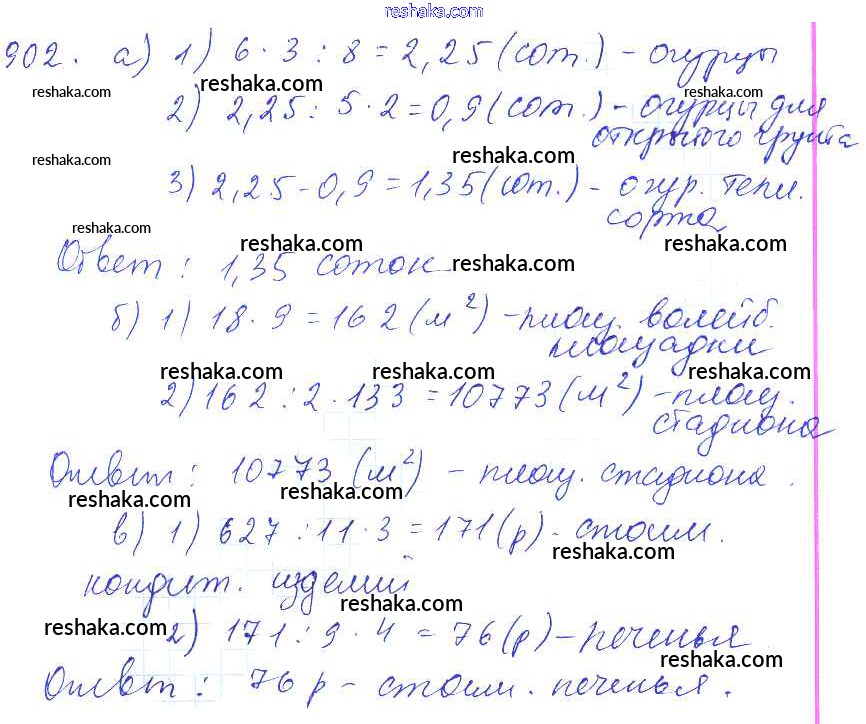 reshaka.com
902. а) 1) 6 · 3 : 8 = 2,25 (сот.) - огурцы
reshaka.com reshaka.com reshaka.com
2) 2,25 : 5 · 2 = 0,9 (сот.) - огурцы для
открытого грунта
reshaka.com reshaka.com
3) 2,25 - 0,9 = 1,35 (сот.) - огур. тепл.
сорта
reshaka.com reshaka.com reshaka.com
Ответ : 1,35 соток
reshaka.com
б) 1) 18 · 9 = 162 (м²) - площ. волейб.
площадки
reshaka.com reshaka.com reshaka.com
2) 162 : 2 · 133 = 10773 (м²) - площ.
стадиона
Ответ : 10773 (м²) - площ. стадиона .
reshaka.com reshaka.com
в) 1) 627 : 11 · 3 = 171 (р) - стоим.
reshaka.com
кондит. изделий
reshaka.com
reshaka.com
2) 171 : 9 · 4 = 76 (р) - печенья
reshaka.com
Ответ : 76 р - стоим. печенья .